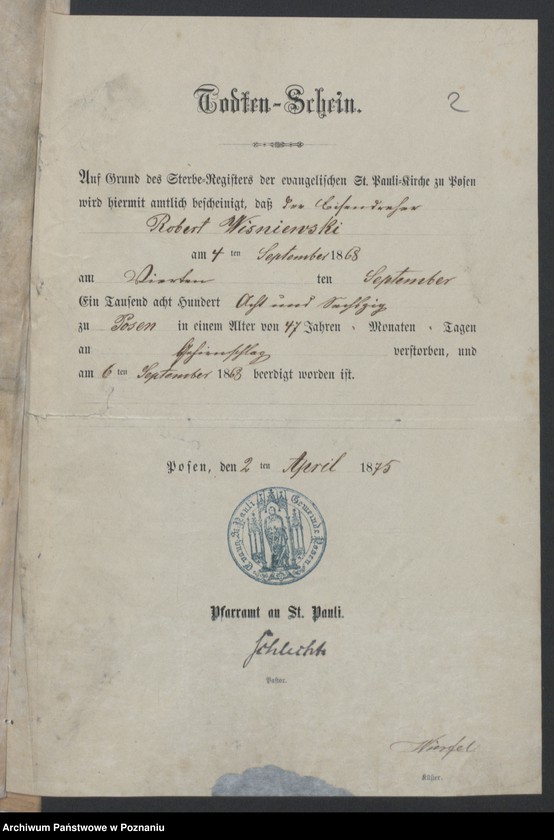 2
Todten-Schein.
Auf Grund des Sterbe-Registers der evangelischen St. Pauli-Kirche zu Posen
wird hiermit amtlich bescheinigt, daß der Eisendreher
Robert Wisniewski
am 4 ten September 1868
am Vierten ten September
Ein Tausend acht Hundert Acht und Sechzig
zu Posen in einem Alter von 47 Jahren - Monaten - Tagen
an Gehirnschlag verstorben, und
am 6 ten September 1868 beerdigt worden ist.
Posen, den 2 ten April 1875
Evang. St. Pauli Gemeinde Posen
Pfarramt an St. Pauli.
Schlecht
Pastor.
Küster.
Archiwum Państwowe w Poznaniu